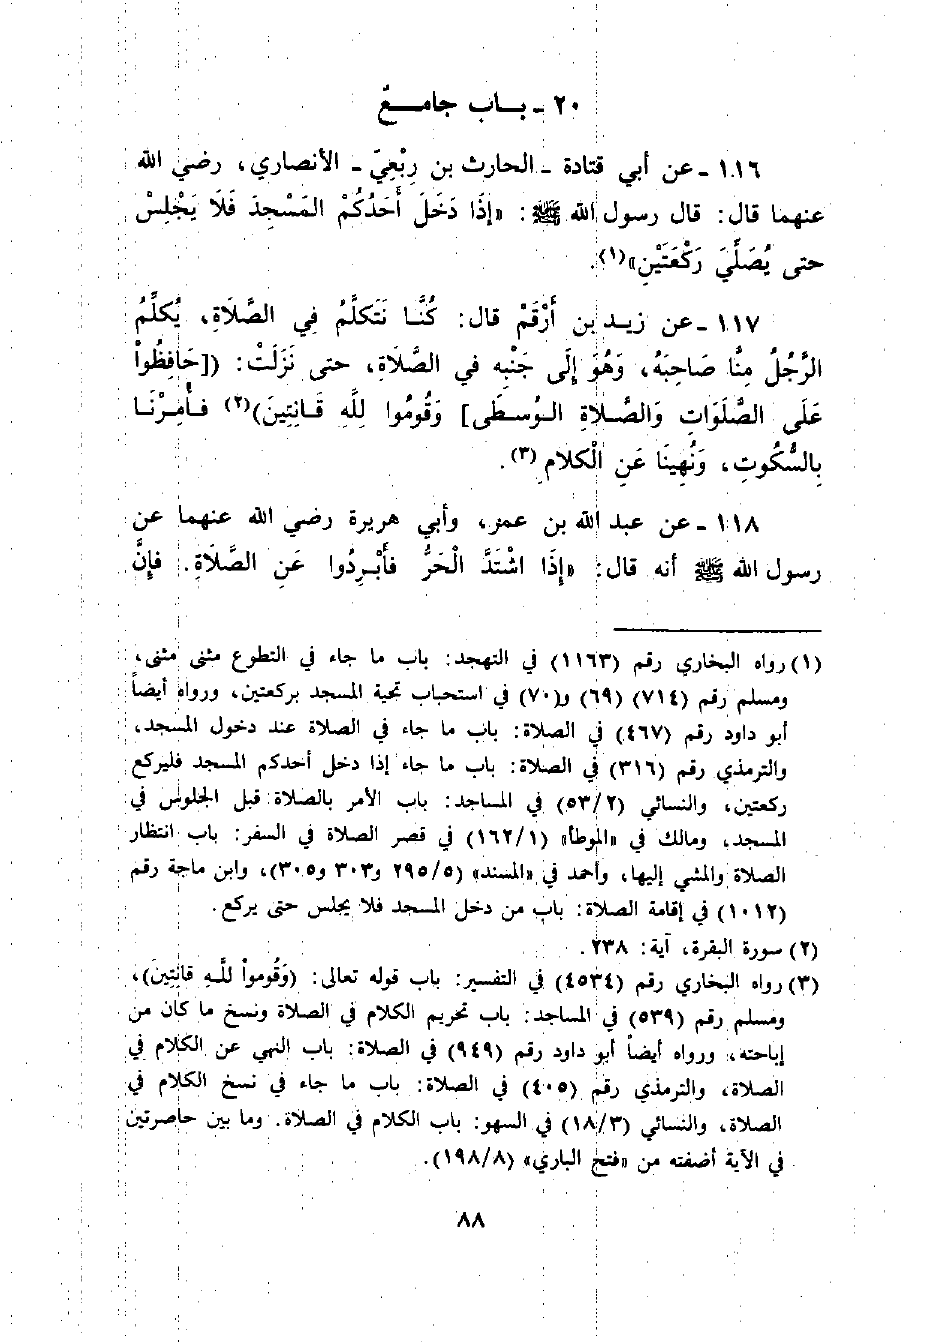 ٢٠ ـ بـاب جامـعٌ
١١٦ ـ عن أبي قتادة ـ الحارث بن رِبْعِيّ ـ الأنصاري، رضي الله
عنهما قال: قال رسول الله ﷺ: «إِذَا دَخَلَ أَحَدُكُمْ المَسْجِدَ فَلَا يَجْلِسْ
حتى يُصَلِّيَ رَكْعَتَيْنِ»(١).
١١٧ ـ عن زيـد بن أَرْقَمْ قال: كُنَّـا نَتَكلَّمُ فِي الصَّلَاةِ، يُكلِّمُ
الرَّجُلُ مِنَّا صَاحِبَهُ، وَهُوَ إِلَى جَنْبِه في الصَّلَاةِ، حتى نَزَلَتْ: ([حَافِظُواْ
عَلَى الصَّلَوَاتِ وَالصَّلَاةِ الـوُسطَى] وَقُومُوا لِلَّهِ قَـانِتِينَ)(٢) فـأُمِـرْنَـا
بِالسُّكُوتِ، وَنُهِينَا عَنِ الْكلامِ(٣).
١١٨ ـ عن عبد الله بن عمر، وأبي هريرة رضي الله عنهما عن
رسول الله ﷺ أنه قال: «إِذَا اشْتَدَّ الْحَرُّ فأَبْـرِدُوا عَنِ الصَّلَاةِ. فإِنَّ
(١) رواه البخاري رقم (١١٦٣) في التهجد: باب ما جاء في التطوع مثنى مثنى،
ومسلم رقم (٧١٤) (٦٩) و(٧٠) في استحباب تحية المسجد بركعتين، ورواه أيضاً
أبو داود رقم (٤٦٧) في الصلاة: باب ما جاء في الصلاة عند دخول المسجد،
والترمذي رقم (٣١٦) في الصلاة: باب ما جاء إذا دخل أحدكم المسجد فليركع
ركعتين، والنسائي (٥٣/٢) في المساجد: باب الأمر بالصلاة قبل الجلوس في
المسجد، ومالك في «الموطأ» (١٦٢/١) في قصر الصلاة في السفر: باب انتظار
الصلاة والمشي إليها، وأحمد في «المسند» (٢٩٥/٥ و٣٠٣ و٣٠٥)، وابن ماجة رقم
(١٠١٢) في إقامة الصلاة: باب من دخل المسجد فلا يجلس حتى يركع.
(٢) سورة البقرة، آية: ٢٣٨.
(٣) رواه البخاري رقم (٤٥٣٤) في التفسير: باب قوله تعالى: (وَقُوموا للَّـهِ قانتِينَ)،
ومسلم رقم (٥٣٩) في المساجد: باب تحريم الكلام في الصلاة ونسخ ما كان من
إباحته، ورواه أيضاً أبو داود رقم (٩٤٩) في الصلاة: باب النهي عن الكلام في
الصلاة، والترمذي رقم (٤٠٥) في الصلاة: باب ما جاء في نسخ الكلام في
الصلاة، والنسائي (١٨/٣) في السهو: باب الكلام في الصلاة. وما بين حاصرتين
في الآية أضفته من «فتح الباري» (١٩٨/٨).
٨٨